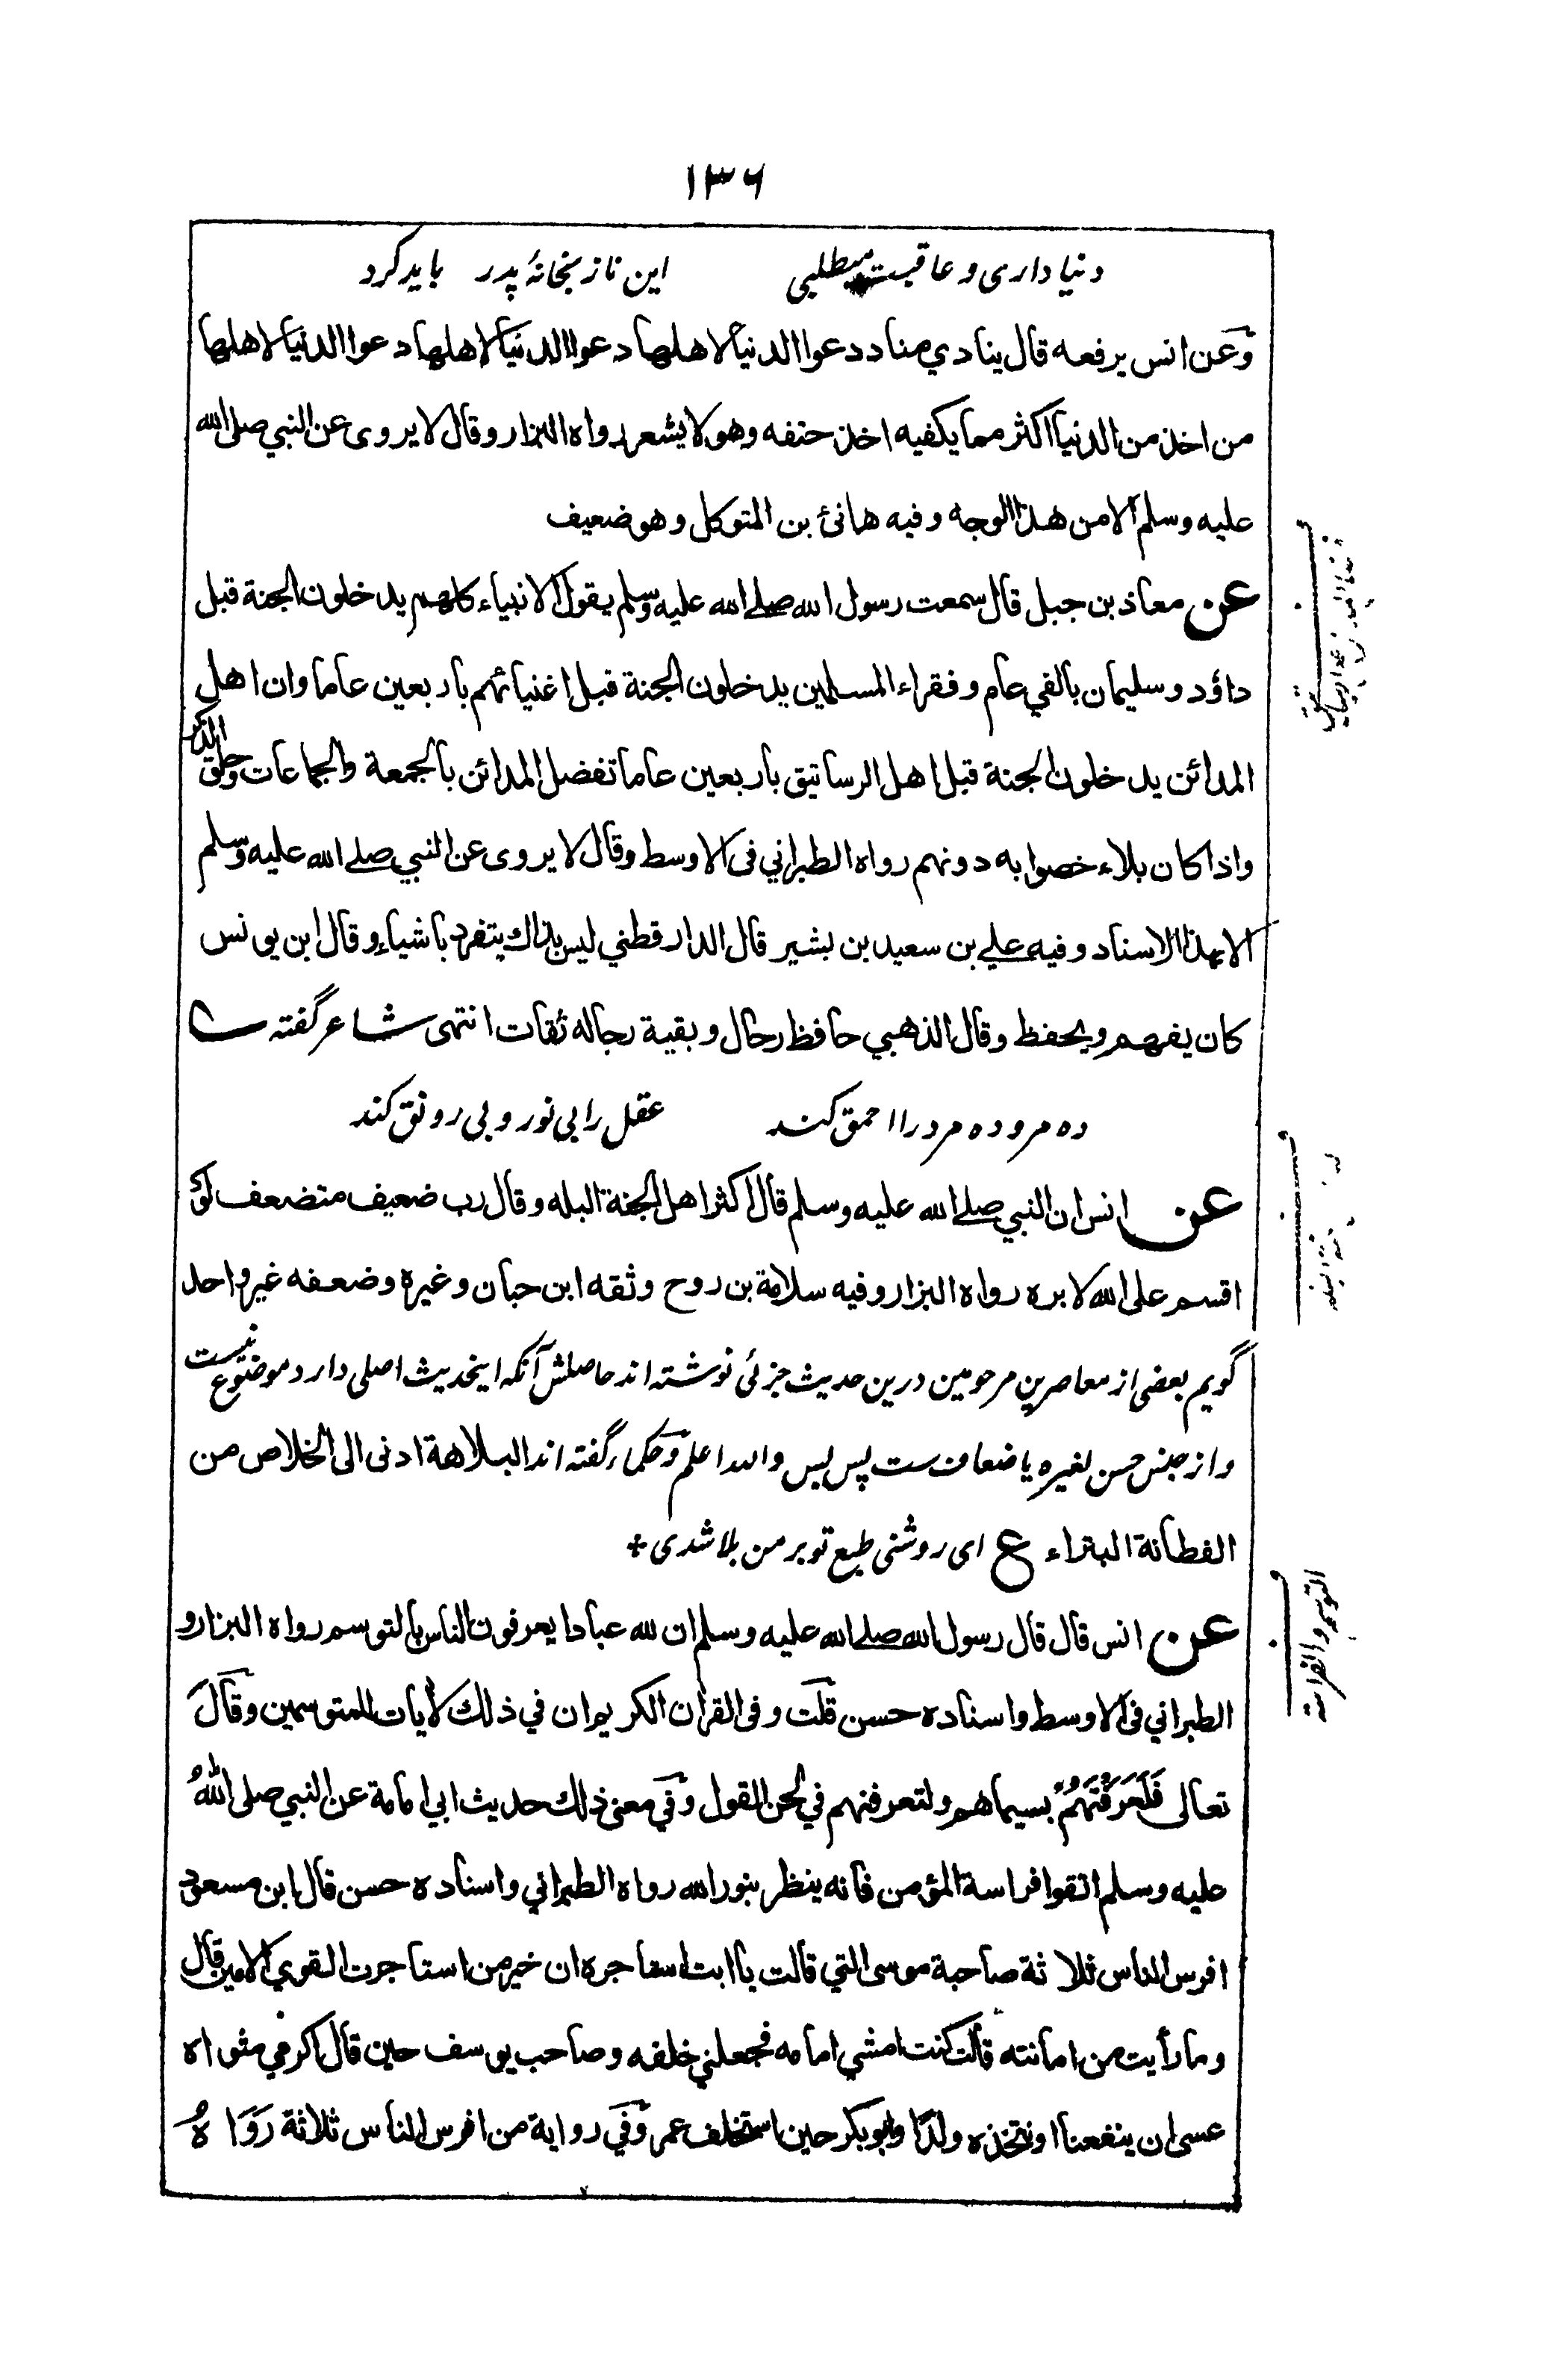 ۱۳۶
دنیا داری و عاقبت میطلبی این ناز بخانهٔ پدر باید کرد
وعن انس يرفعه قال ينادي مناد دعوا الدنيا لاهلها دعوا الدنيا لاهلها دعوا الدنيا لاهلها
من اخذ من الدنيا اكثر مما يكفيه اخذ حتفه وهو لا يشعر رواه البزار وقال لا يروى عن النبي صلى الله
عليه وسلم الا من هذا الوجه وفيه هانئ بن المتوكل وهو ضعيف
عن معاذ بن جبل قال سمعت رسول الله صلے الله عليه وسلم يقول الانبياء كلهم يدخلون الجنة قبل
داؤد وسليمان بالفي عام وفقراء المسلمين يدخلون الجنة قبل اغنيائهم باربعين عاما وان اهل
المدائن يدخلون الجنة قبل اهل الرساتيق باربعين عاما تفضل المدائن بالجمعة والجماعات وحلق الذكر
واذا كان بلاء خصوا به دونهم رواه الطبراني فى الاوسط وقال لا يروى عن النبي صلے الله عليه وسلم
الا بهذا الاسناد وفيه علي بن سعيد بن بشير قال الدارقطني ليس بذاك يتفرد باشياء وقال ابن يونس
كان يفهم ويحفظ وقال الذهبي حافظ رحال وبقية رجاله ثقات انتهى شاعر گفته
ده مرو ده مرد را احمق كند عقل را بی نور و بی رونق کند
عن انس ان النبي صلے الله عليه وسلم قال اكثر اهل الجنة البله وقال رب ضعيف متضعف لو
اقسم على الله لابره رواه البزار وفيه سلامة بن روح وثقه ابن حبان وغيره وضعفه غير واحد
گویم بعضی از معاصرین مرحومین درین حدیث جزئی نوشته اند حاصلش آنکه اینحدیث اصلی دارد موضوع نیست
و از جنس حسن لغیره یا ضعاف ست پس لیس والله اعلم وحکماء گفته اند البلاهة ادنى الى الخلاص من
الفطانة البتراء ع ای روشنی طبع تو بر من بلا شدی +
عن انس قال قال رسول الله صلے الله عليه وسلم ان لله عبادا يعرفون الناس بالتوسم رواه البزار و
الطبراني فى الاوسط واسناده حسن قلت وفى القرآن الكريم ان في ذلك لآيات للمتوسمين وقال
تعالى فَلَعَرَفْتَهُمْ بسيماهم ولتعرفنهم في لحن القول وفي معنى ذلك حديث ابي امامة عن النبي صلى اللهُ
عليه وسلم اتقوا فراسة المؤمن فانه ينظر بنور الله رواه الطبراني واسناده حسن قال ابن مسعود
افرس الناس ثلاثة صاحبة موسى التي قالت يا ابت استاجره ان خير من استاجرت القوي الامين قال
وما رأيت من امانته قالت كنت امشي امامه فجعلني خلفه وصاحب يوسف حين قال اكرمي مثواه
عسى ان ينفعنا او نتخذه ولدًا وابو بكر حين استخلف عمر وفي رواية من افرس الناس ثلاثة رَوَاهُ
ف
ف
ف
التوسم والفراسة